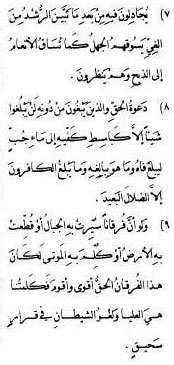 ٧) يجادلون فيه من بعد ما تبين الرشد من
الغي يسوقهم الجهل كما تساق الأنعام
إلى الذبح وهم ينظرون.
٨) دعوة الحق والذين يبغون من دونه لن يبلغوا
شيئاً إلا كباسط كفيه إلى ماء جب
ليبلغ فاه وما هو ببالغه وما يبلغ الكافرون
إلا الضلال البعيد.
٩) ولو أن فرقاناً سيرت به الجبال أو قطعت
به الأرض أو كلم به الموتى لكان
هذا الفرقان الحق أقوى وأقوم فكلمتنا
هي العليا وكفر الشيطان في قرار
سحيق.